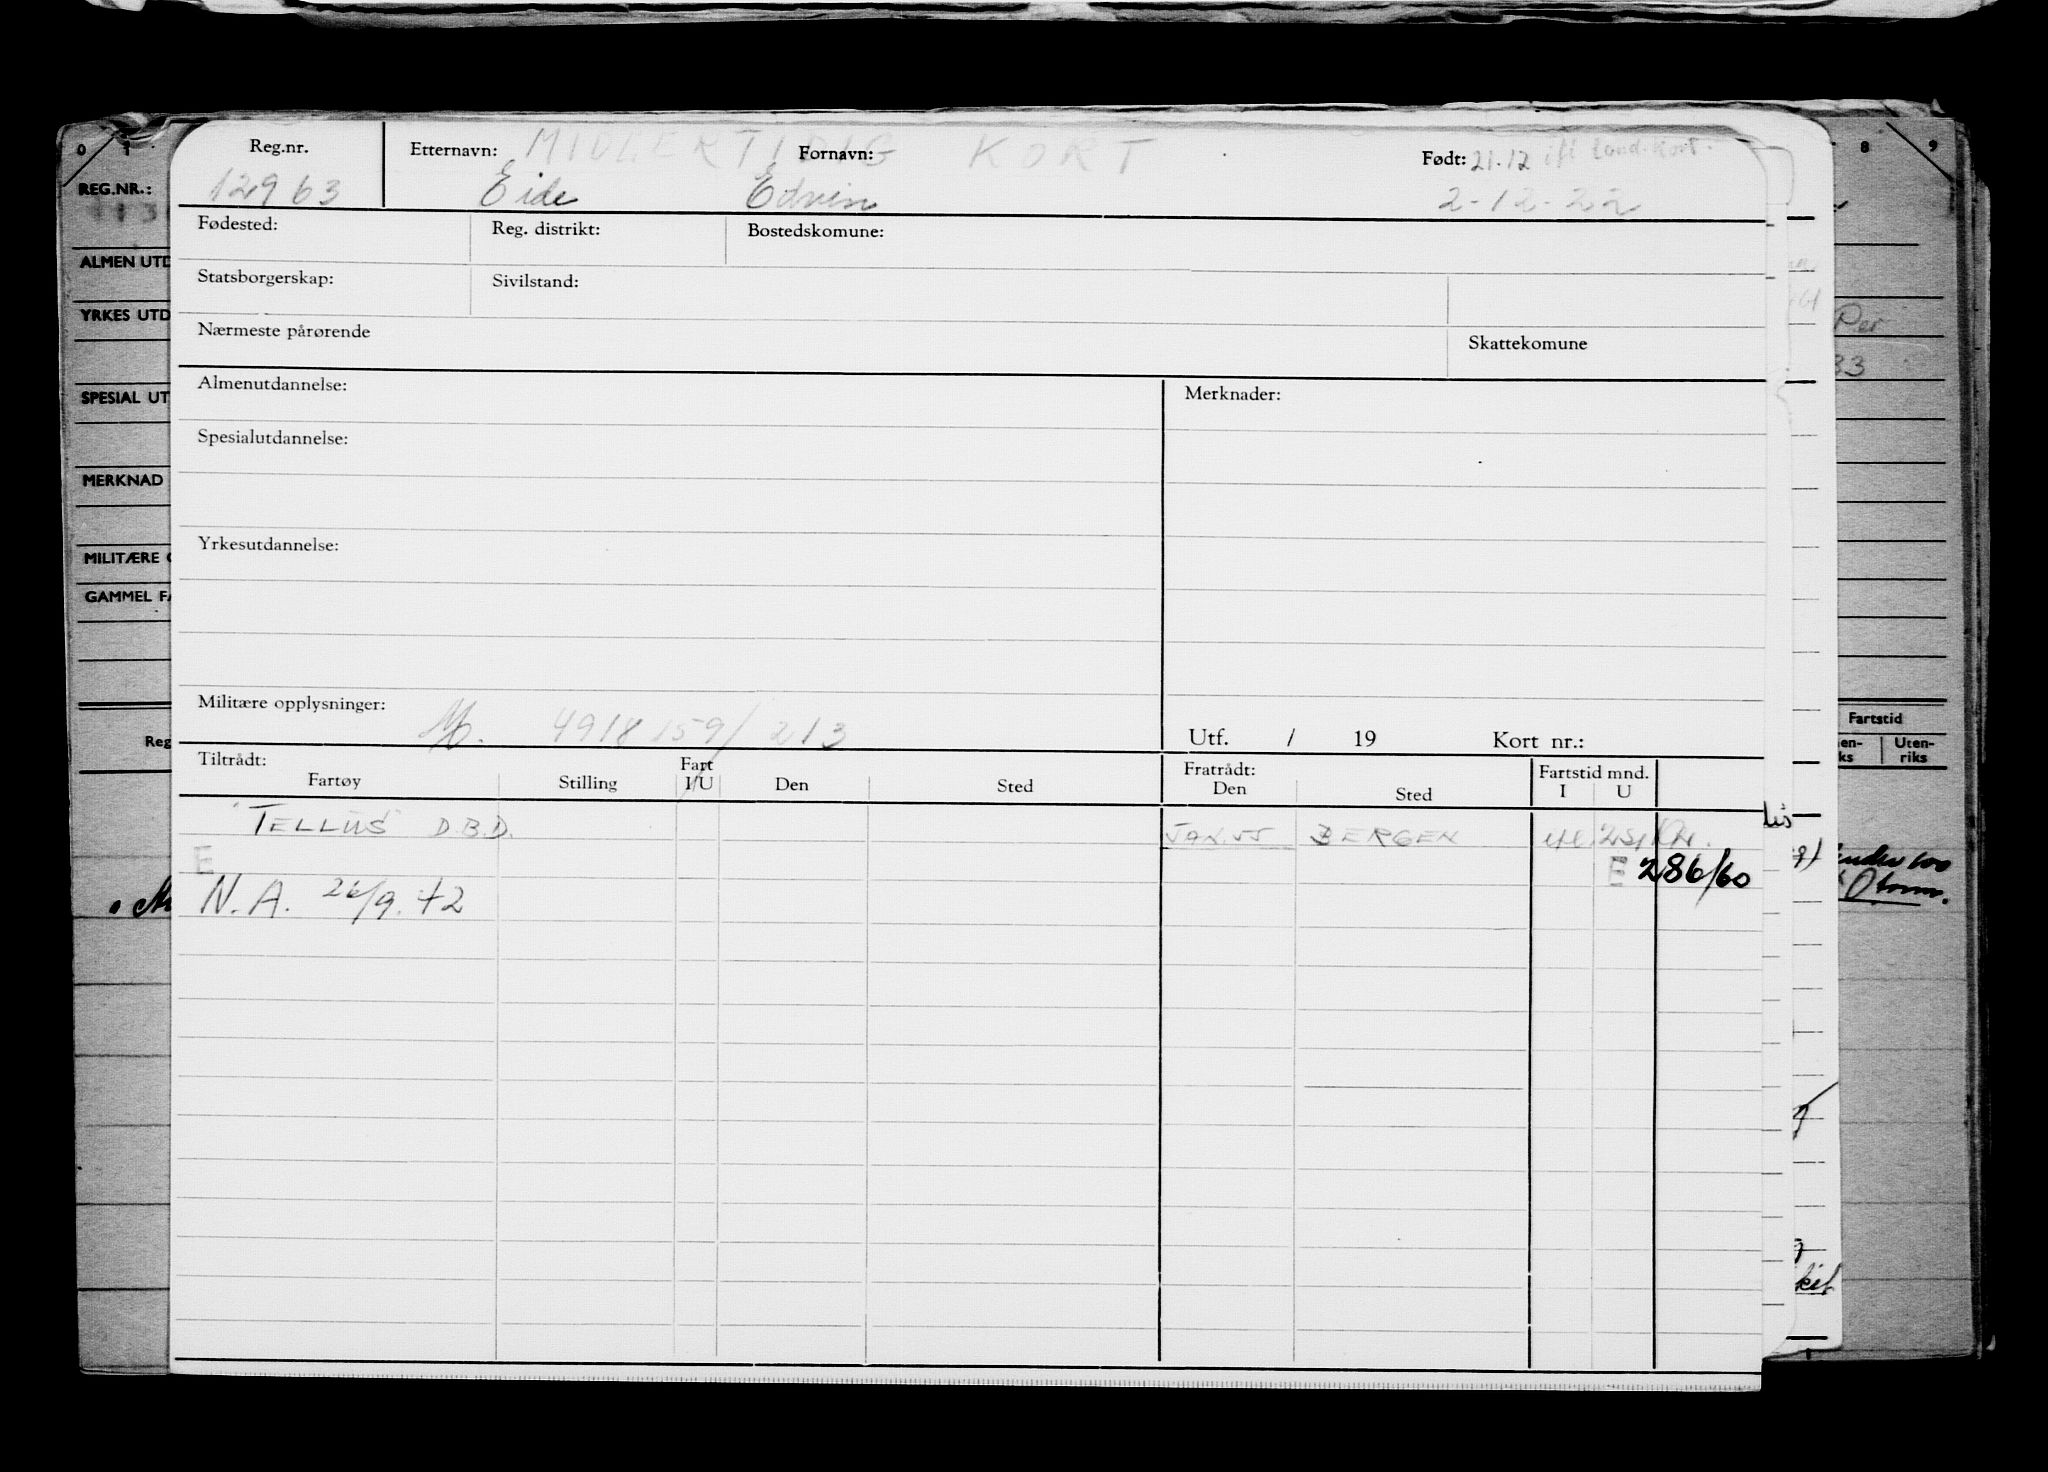 MIDLERTIDIG KORT
Reg.nr. Etternavn: Fornavn: Født: 21.12 ifl. Land.kort.
12963 Eide Edvin 2-12-22
Fødested: Reg. distrikt: Bostedskomune:
Statsborgerskap: Sivilstand:
Nærmeste pårørende Skattekomune
Almenutdannelse: Merknader:
Spesialutdannelse:
Yrkesutdannelse:
Militære opplysninger: 4918159/213
Utf. / 19 Kort nr.:
Tiltrådt: Fratrådt: Fartstid mnd.
Fartøy Stilling Fart I/U Den Sted Den Sted I U
"TELLUS" D.B.D. JAN.55 BERGEN
E E 286/60
N.A. 26/9.72
0 1 8 9
REG.NR.:
ALMEN UTD
YRKES UTD
SPECIAL UT
MERKNAD
MILITÆRE
GAMMEL FA
Reg
Per
33
Fartstid
en-ks Uten-riks